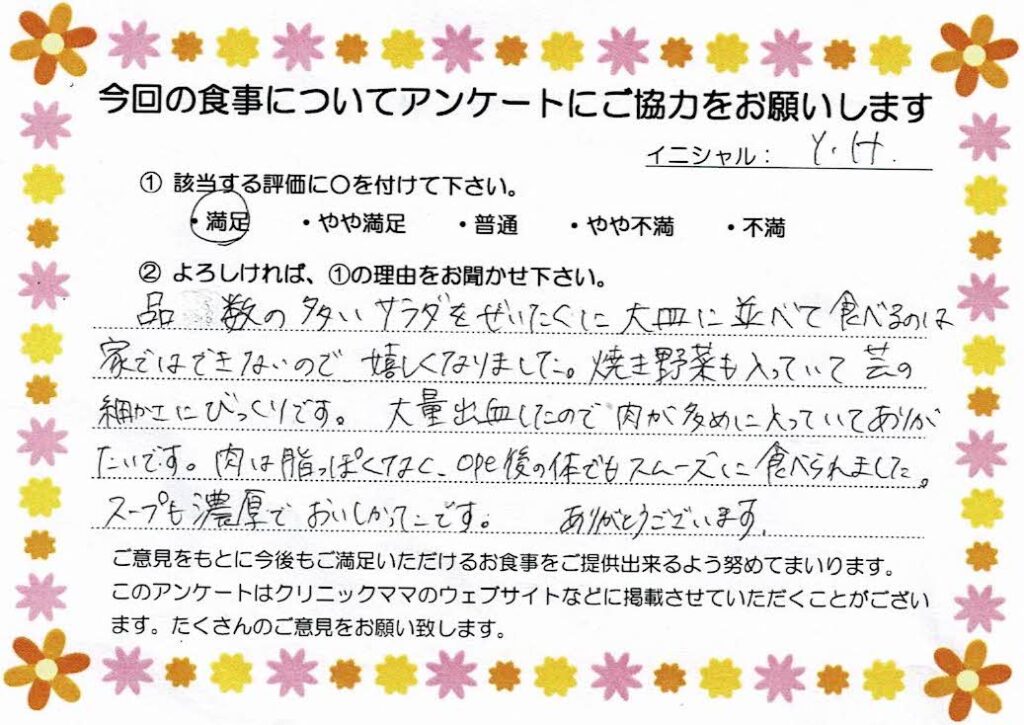 今回の食事についてアンケートにご協力をお願いします
イニシャル： Y.H.
① 該当する評価に〇を付けて下さい。
・満足 ・やや満足 ・普通 ・やや不満 ・不満
② よろしければ、①の理由をお聞かせ下さい。
品数の多いサラダをぜいたくに大皿に並べて食べるのは
家ではできないので嬉しくなりました。焼き野菜も入っていて芸の
細かさにびっくりです。 大量出血したので肉が多めに入っていてありが
たいです。肉は脂っぽくなく、ope後の体でもスムーズに食べられました。
スープも濃厚でおいしかったです。 ありがとうございます.
ご意見をもとに今後もご満足いただけるお食事をご提供出来るよう努めてまいります。
このアンケートはクリニックママのウェブサイトなどに掲載させていただくことがござい
ます。たくさんのご意見をお願い致します。